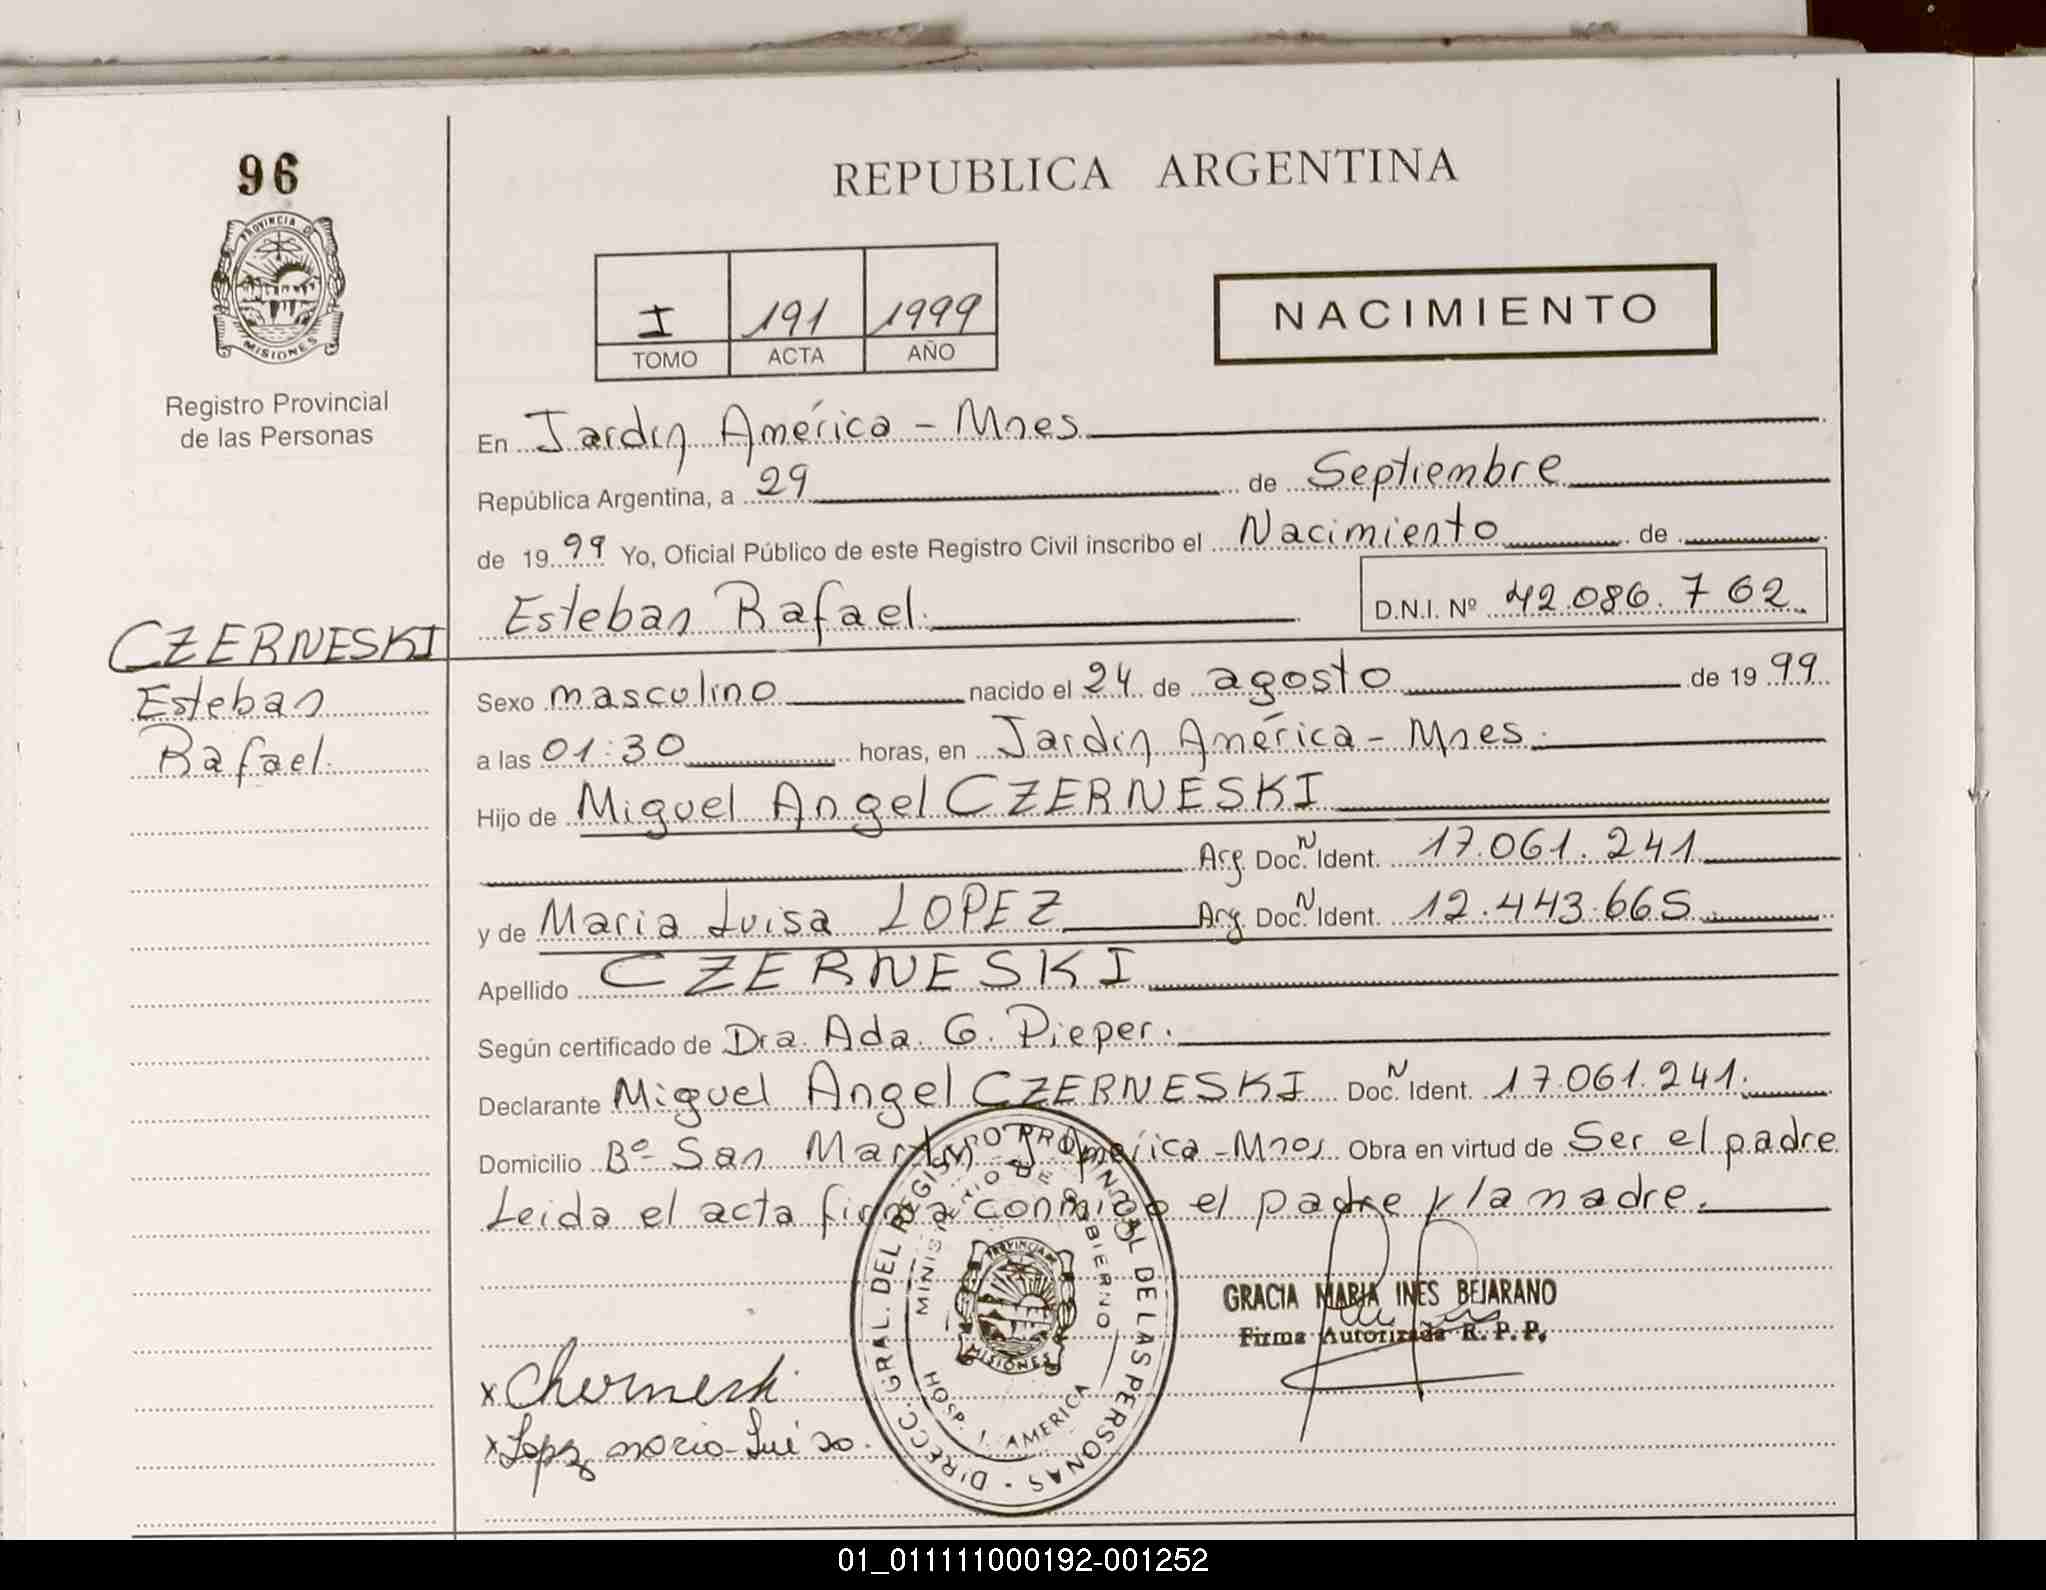 96
REPUBLICA ARGENTINA
PROVINCIA DE
MISIONES
Registro Provincial
de las Personas
I 191 1999
TOMO ACTA AÑO
NACIMIENTO
En Jardín América - Mnes
República Argentina, a 29 de Septiembre
de 1999 Yo, Oficial Público de este Registro Civil inscribo el Nacimiento de
Esteban Rafael. D.N.I. Nº 42.086.762
CZERNESKI
Esteban
Rafael.
Sexo masculino nacido el 24 de agosto de 1999
a las 01:30 horas, en Jardín América - Mnes.
Hijo de Miguel Angel CZERNESKI
Arg. Doc. N Ident. 17.061.241
y de Maria Luisa LOPEZ Arg. Doc. N Ident. 12.443.665
Apellido CZERNESKI
Según certificado de Dra. Ada. G. Pieper.
Declarante Miguel Angel CZERNESKI Doc. N Ident. 17.061.241.
Domicilio Bº San Martín J. América - Mnes Obra en virtud de Ser el padre
Leida el acta firma conmigo el padre y la madre.
DIRECC. GRAL. DEL REGISTRO PROVINCIAL DE LAS PERSONAS
MINISTERIO DE GOBIERNO
PROVINCIA DE
MISIONES
HOSP. J. AMERICA
GRACIA MARIA INES BEJARANO
Firma Autorizada R. P. P.
x Cherneski
x Lopez maria Luisa.
01_011111000192-001252